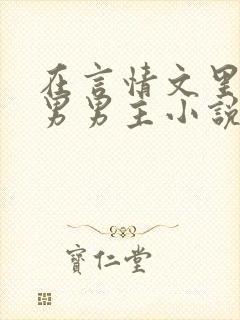 在言情文里
男男主小说
寶仁堂